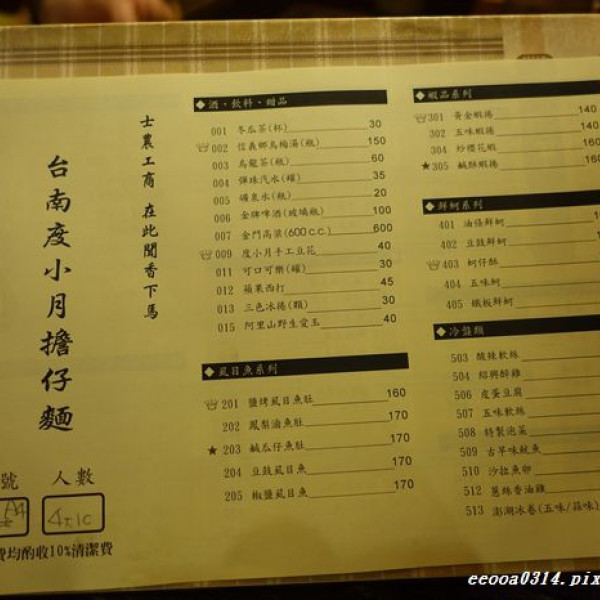 士農工商 在此聞香下馬
台南度小月擔仔麵
號 人數
A4 4大1C
費均酌收10%清潔費
◆酒·飲料·甜品
001 冬瓜茶(杯) 30
002 信義鄉烏梅湯(瓶) 150
003 烏龍茶(瓶) 60
004 彈珠汽水(罐) 35
005 礦泉水(瓶) 20
006 金牌啤酒(玻璃瓶) 100
007 金門高粱(600 c.c.) 600
009 度小月手工豆花 40
011 可口可樂(罐) 30
012 蘋果西打 45
013 三色冰捲(顆) 30
015 阿里山野生愛玉 40
◆虱目魚系列
201 鹽烤虱目魚肚 160
202 鳳梨滷魚肚 170
★203 鹹瓜仔魚肚 170
204 豆豉虱目魚 170
205 椒鹽虱目魚 170
◆蝦品系列
301 黃金蝦捲 140
302 五味蝦捲 140
304 炒櫻花蝦 160
★305 鹹酥蝦捲 160
◆鮮蚵系列
401 油條鮮蚵
402 豆豉鮮蚵
403 蚵仔酥
404 五味蚵
405 鐵板鮮蚵
◆冷盤類
503 酸辣軟絲
504 紹興醉雞
506 皮蛋豆腐
507 五味軟絲
508 特製泡菜
509 古早味魷魚
510 沙拉魚卵
512 蔥絲香油雞
513 澎湖冰卷(五味/蒜味)
eeooa0314.pix